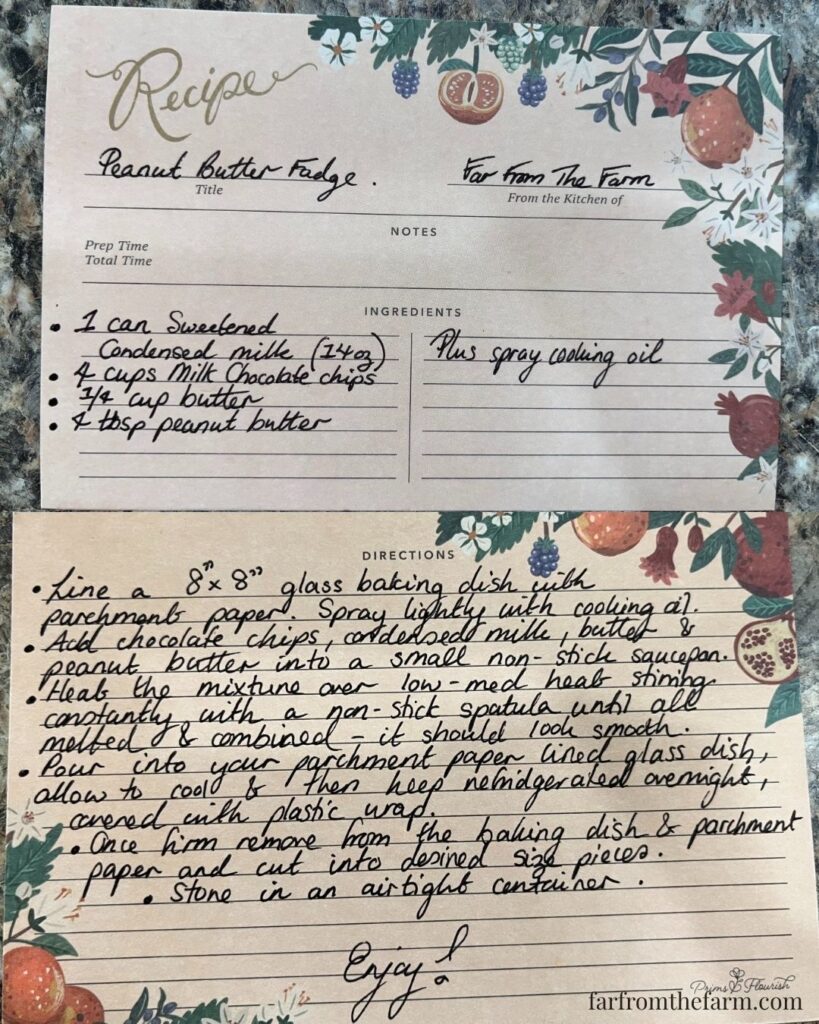 Recipe
Peanut Butter Fudge.
Far From The Farm
Title
From the Kitchen of
NOTES
Prep Time
Total Time
INGREDIENTS
• 1 can Sweetened
Condensed milk (14oz)
• 4 cups Milk Chocolate chips
• 1/4 cup butter
• 4 tbsp peanut butter
Plus spray cooking oil
DIRECTIONS
• Line a 8"x 8" glass baking dish with
parchment paper. Spray lightly with cooking oil.
• Add chocolate chips, condensed milk, butter &
peanut butter into a small non-stick saucepan.
• Heat the mixture over low-med heat stirring
constantly with a non-stick spatula until all
melted & combined - it should look smooth.
• Pour into your parchment paper lined glass dish,
allow to cool & then keep refridgerated overnight,
covered with plastic wrap.
• Once firm remove from the baking dish & parchment
paper and cut into desired size pieces.
• Store in an airtight container.
Enjoy!
Prims & Flourish
farfromthefarm.com